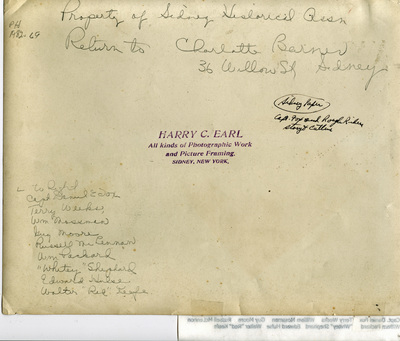 PH
Property of Sidney Historical Assn
Return to Charlotte
36 Willow St Sidney
Sidney
Capt. Fox and Rough Riders
Story
HARRY C. EARL
All kinds of Photographic Work
and Picture Framing.
SIDNEY, NEW YORK.
L to R
Capt. Daniel Fox
Terry Weeks,
Wm Mossman
Guy Moore
Russell McKennan
Packard
"Whitey" Shephard
Edward
Walter "Red"